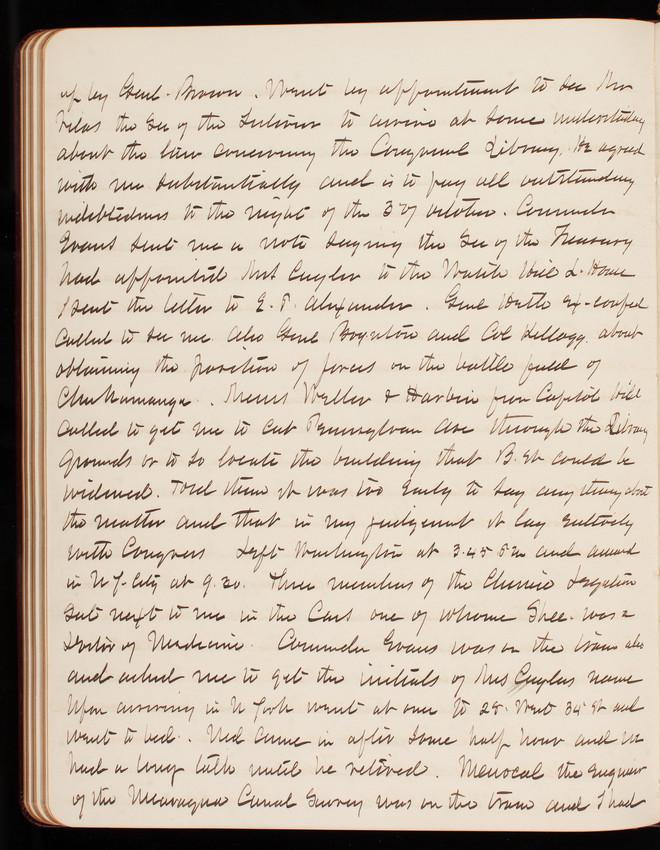 up by Genl. Brown. Went by appointment to see Mr
Vilas the Sec of the Interior to arrive at some understanding
about the law concerning the Congressnl Library. He agreed
with me substantially and is to pay all outstanding
indebtedness to the night of the 3rd of October. Commander
Evans sent me a note saying the Sec of the Treasury
had appointed Mrs Cuyler to the Watch Hill L. House
I sent the letter to E. P. Alexander. Genl Heth ex-confed
called to see me also Genl Boynton and Col Kellogg, about
obtaining the position of forces on the battle field of
Chickamauga. Messrs Weller & Harbin from Capitol Hill
called to get me to cut Pennsylvan Ave through the Library
grounds or to so locate the building that B. St could be
widened. Told them it was too early to say any thing about
the matter and that in my judgement it lay entirely
with Congress Left Washington at 3.45 P m and arrived
in N Y. City at 9.20. Three members of the Chinese Legation
sat next to me in the Cars one of whome Shee. was a
Doctor of Medicine. Commander Evans was on the train also
and asked me to get the initials of Mrs Cuylers name
Upon arriving in N York went at once to 28. West 34 St and
went to bed. Ned came in after some half hour and we
had a long talk until he retired. Menocal the Engineer
of the Nicaragua Canal Survey was on the train and I had